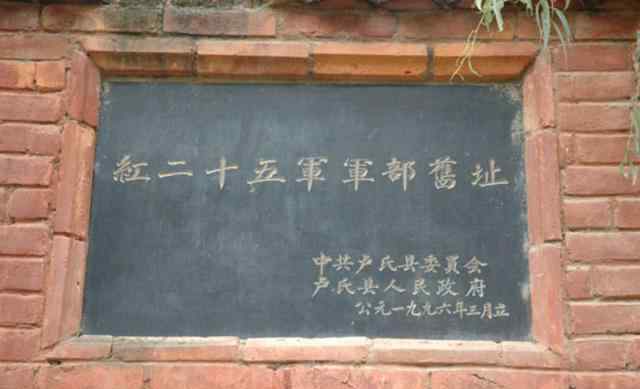 紅二十五軍軍部舊址
中共卢氏县委員会
卢氏县人民政府
公元一九九六年三月立